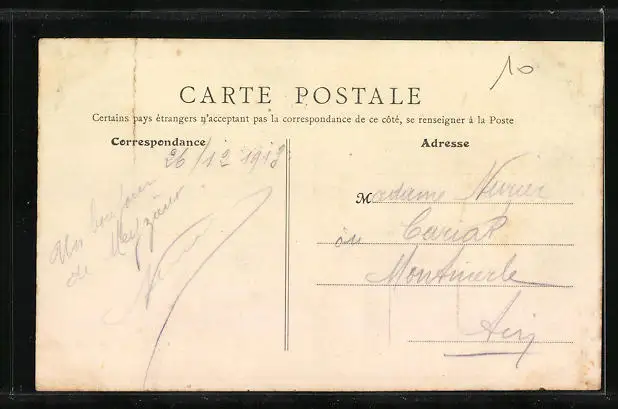 10
CARTE POSTALE
Certains pays étrangers n'acceptant pas la correspondance de ce côté, se renseigner à la Poste
Correspondance
Adresse
26/12 1912
Un bonjour
de Meyzieux
Madame
au Cariat
Montmerle
Ain